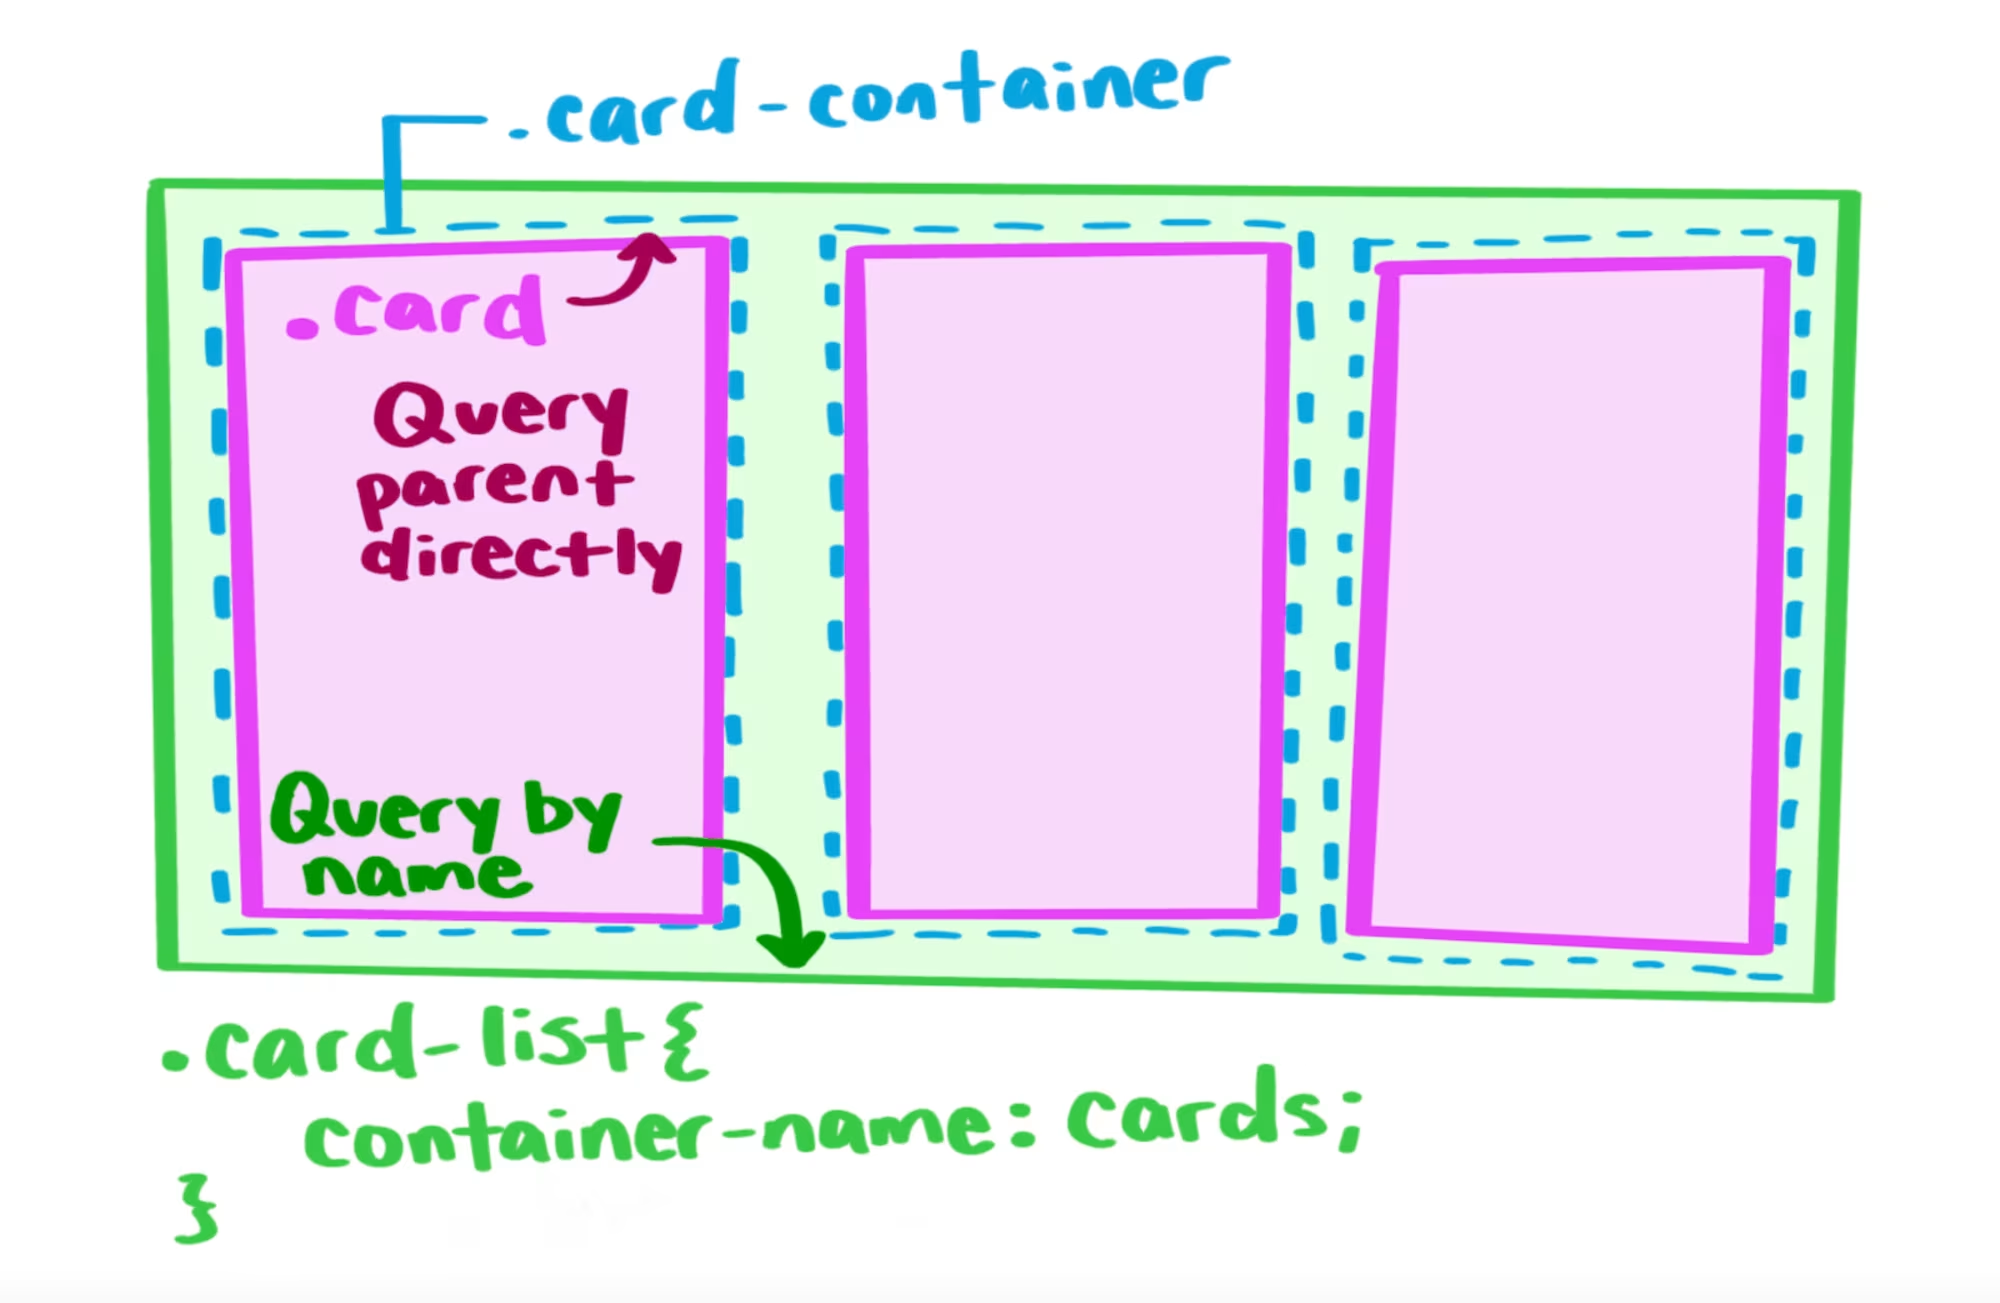 .card-container
.card
Query
parent
directly
Query by
name
.card-list{
container-name: cards;
}